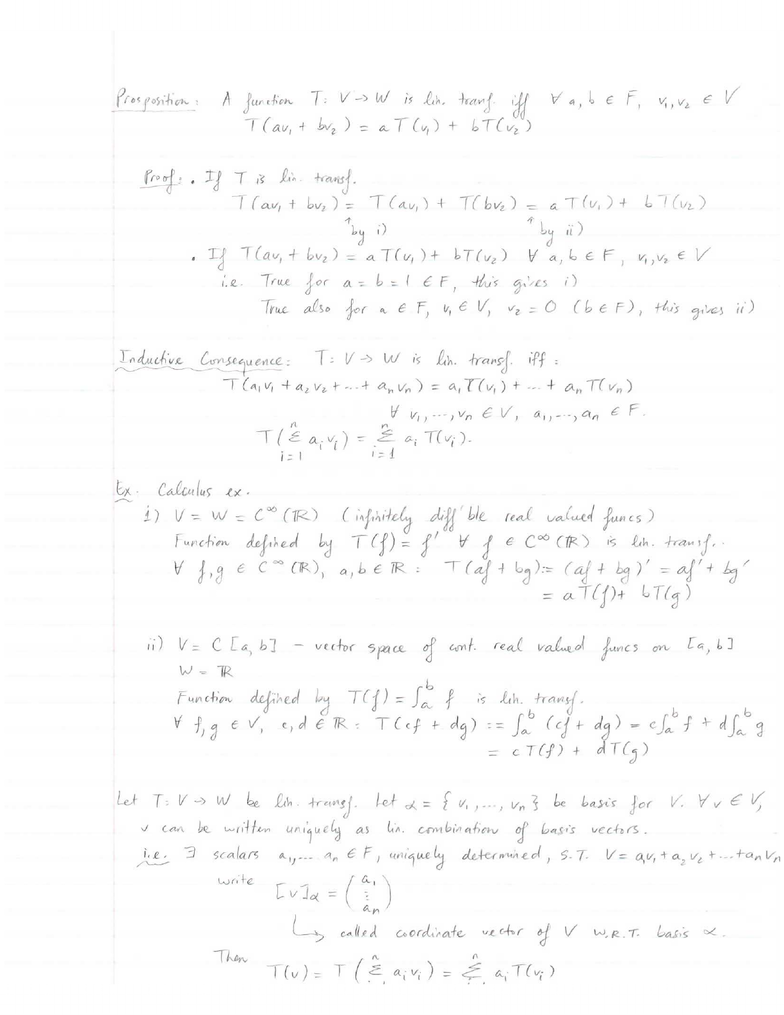 Prosposition: A function T: V → W is lin. transf. iff ∀ a, b ∈ F, v₁, v₂ ∈ V
T(av₁ + bv₂) = a T(v₁) + bT(v₂)
Proof: • If T is lin. transf.
T(av₁ + bv₂) = T(av₁) + T(bv₂) = a T(v₁) + bT(v₂)
↑ by i) ↑ by ii)
• If T(av₁ + bv₂) = a T(v₁) + bT(v₂) ∀ a, b ∈ F, v₁, v₂ ∈ V
i.e. True for a = b = 1 ∈ F, this gives i)
True also for a ∈ F, v₁ ∈ V, v₂ = 0 (b ∈ F), this gives ii)
Inductive Consequence: T: V → W is lin. transf. iff:
T(a₁v₁ + a₂v₂ + ... + aₙvₙ) = a₁T(v₁) + ... + aₙT(vₙ)
∀ v₁, ..., vₙ ∈ V, a₁, ..., aₙ ∈ F.
T(∑ᵢ₌₁ⁿ aᵢvᵢ) = ∑ᵢ₌₁ⁿ aᵢ T(vᵢ).
Ex. Calculus ex.
i) V = W = C^∞(ℝ) (infinitely diff'ble real valued funcs)
Function defined by T(f) = f' ∀ f ∈ C^∞(ℝ) is lin. transf..
∀ f, g ∈ C^∞(ℝ), a, b ∈ ℝ: T(af + bg) := (af + bg)' = af' + bg'
= aT(f) + bT(g)
ii) V = C[a, b] - vector space of cont. real valued funcs on [a, b]
W = ℝ
Function defined by T(f) = ∫ₐᵇ f is lin. transf.
∀ f, g ∈ V, c, d ∈ ℝ: T(cf + dg) := ∫ₐᵇ (cf + dg) = c∫ₐᵇ f + d∫ₐᵇ g
= cT(f) + dT(g)
Let T: V → W be lin. transf. Let α = {v₁, ..., vₙ} be basis for V. ∀ v ∈ V,
v can be written uniquely as lin. combination of basis vectors.
i.e. ∃ scalars a₁, ... aₙ ∈ F, uniquely determined, S.T. V = a₁v₁ + a₂v₂ + ... + aₙvₙ
write [v]α = (a₁ ⋮ aₙ)
↳ called coordinate vector of V W.R.T. basis α.
Then
T(v) = T(∑ⁿ aᵢvᵢ) = ∑ⁿ aᵢT(vᵢ)